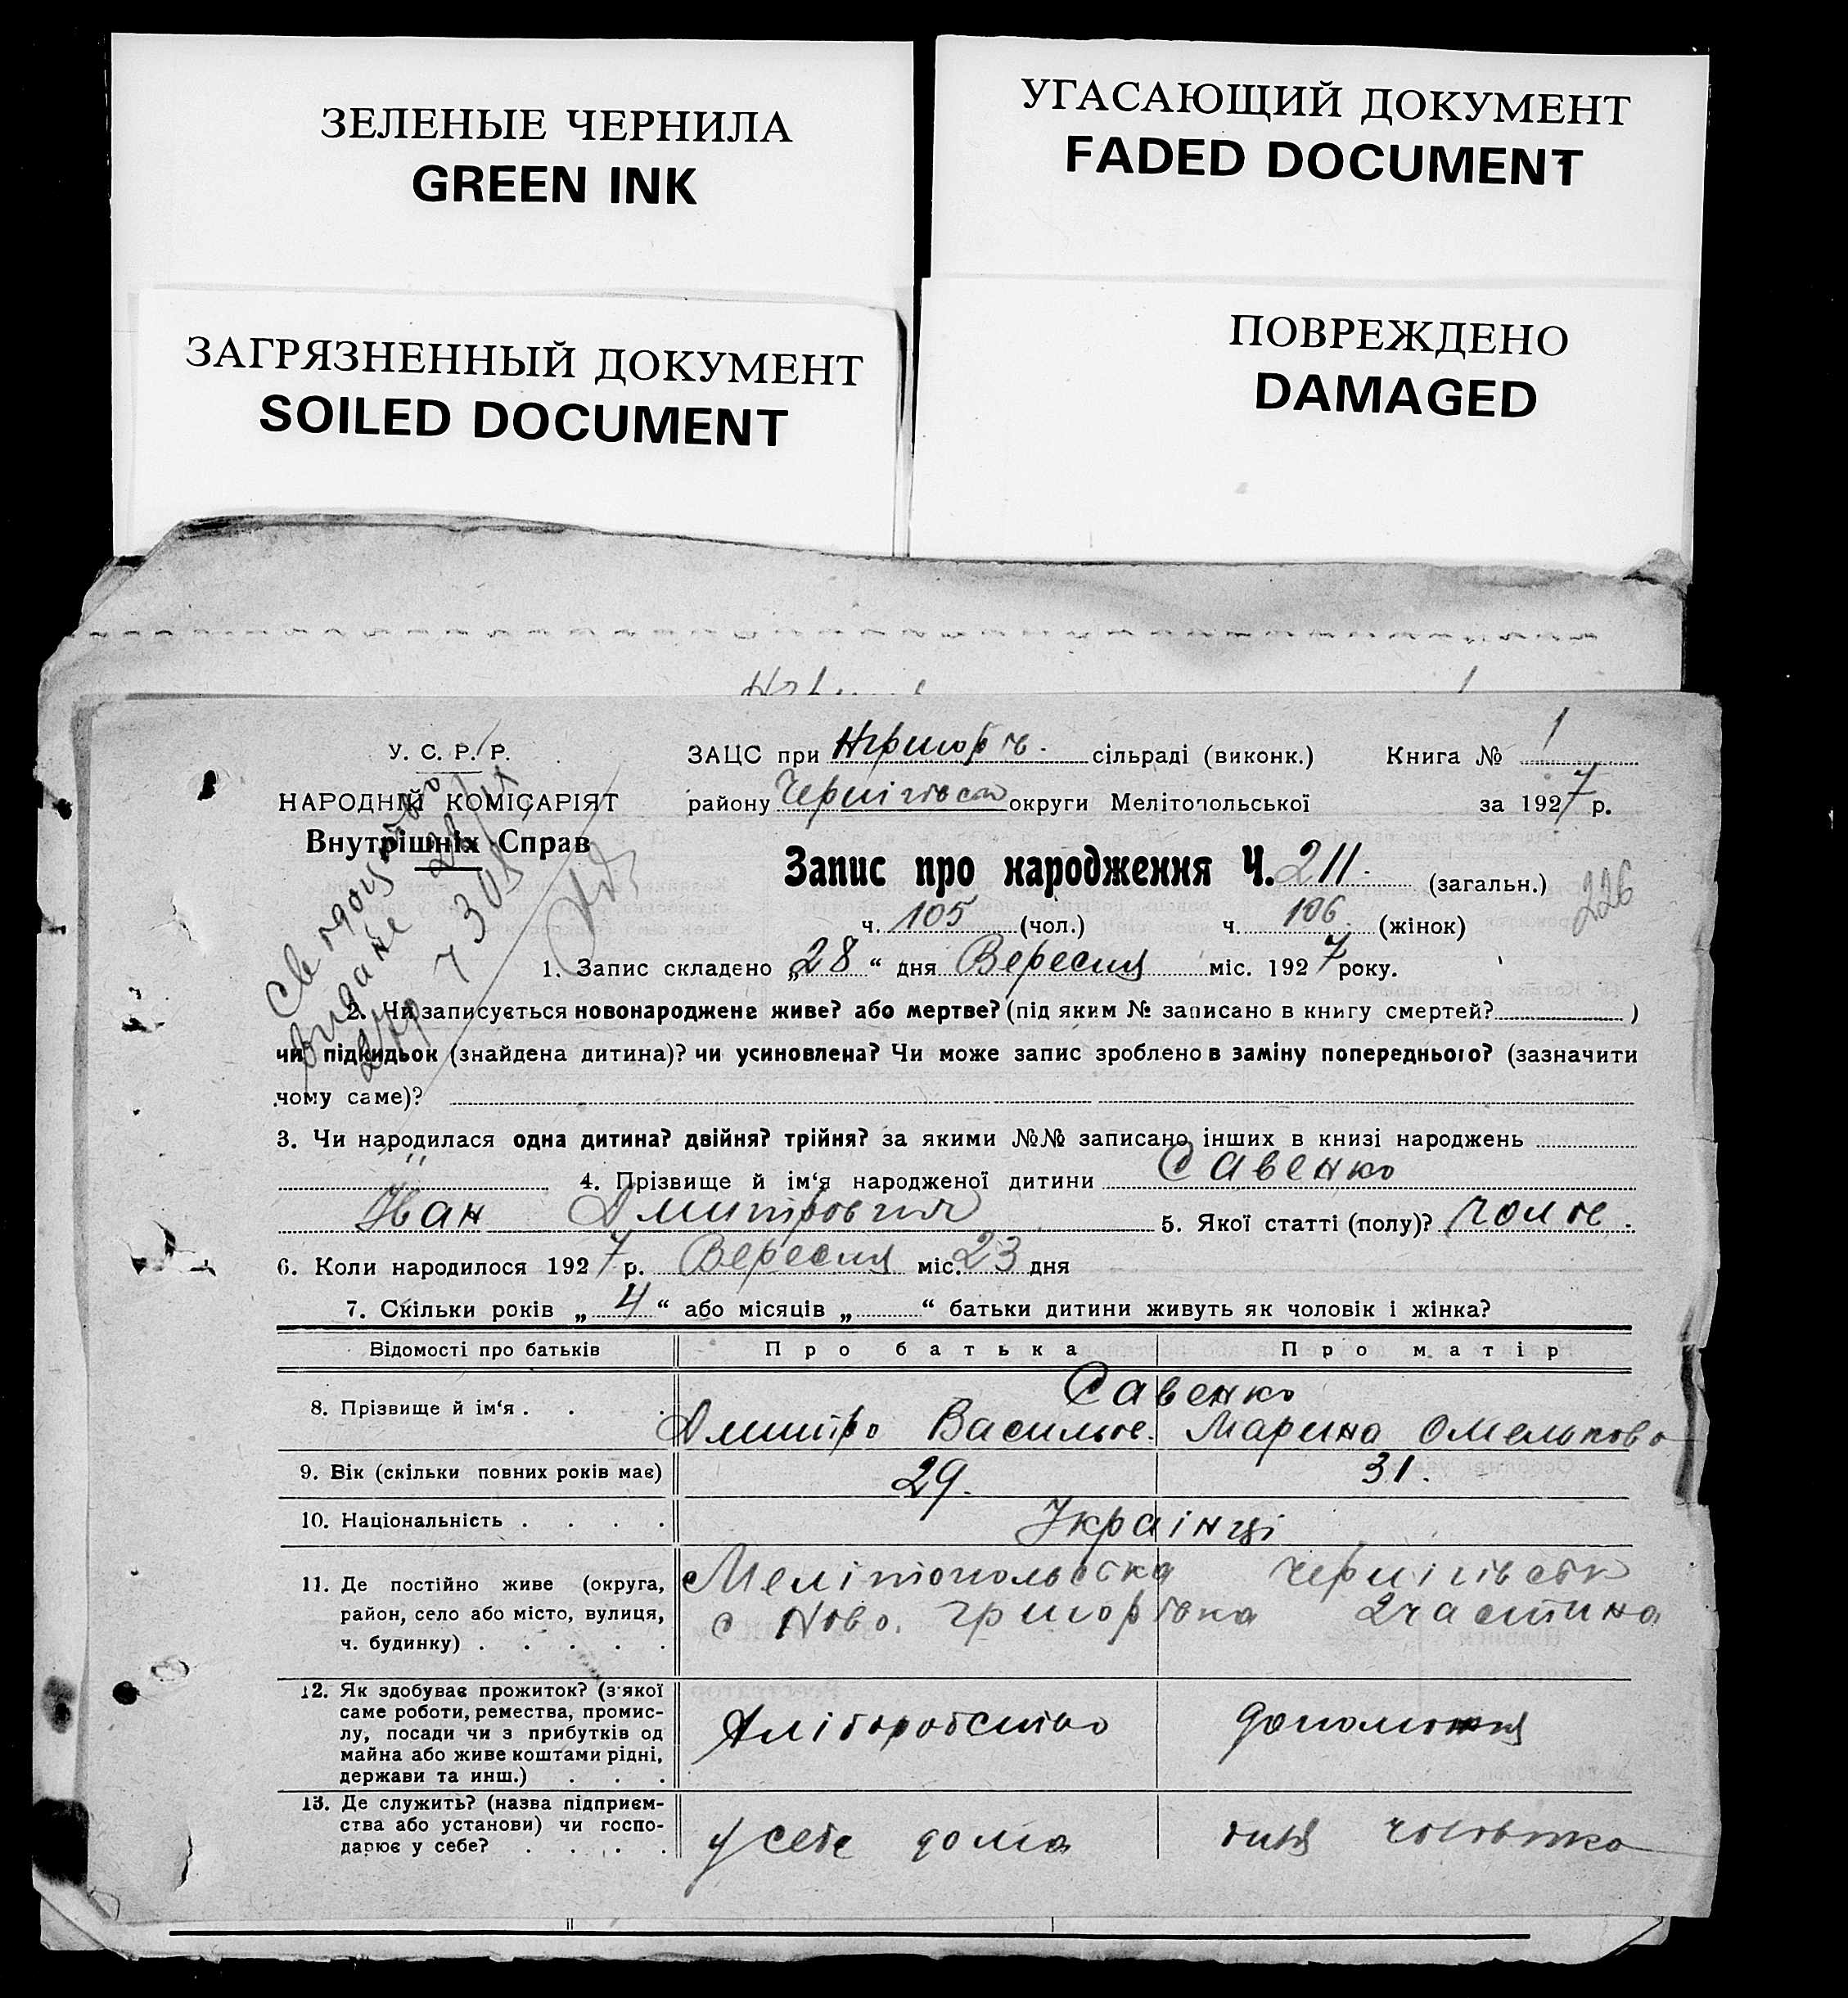 ЗЕЛЕНЫЕ ЧЕРНИЛА
GREEN INK
УГАСАЮЩИЙ ДОКУМЕНТ
FADED DOCUMENT
ЗАГРЯЗНЕННЫЙ ДОКУМЕНТ
SOILED DOCUMENT
ПОВРЕЖДЕНО
DAMAGED
У. С. Р. Р.
НАРОДНІЙ КОМІСАРІЯТ
Внутрішніх Справ
ЗАЦС при сільраді (виконк.) Книга № 1
району Чернігівськ округи Мелітопольської за 1927 р.
Запис про народження Ч. 211. (загальн.)
226
ч. 105 (чол.) ч. 106 (жінок)
1. Запис складено „28“ дня Вересня міс. 1927 року.
2. Чи записується новонароджене живе? або мертве? (під яким № записано в книгу смертей? )
чи підкидьок (знайдена дитина)? чи усиновлена? Чи може запис зроблено в заміну попереднього? (зазначити
чому саме)?
3. Чи народилася одна дитина? двійня? трійня? за якими №№ записано інших в книзі народжень
4. Прізвище й ім'я народженої дитини Савенко
Іван Дмитрович 5. Якої статті (полу)?
6. Коли народилося 1927 р. Вересня міс. 23 дня
7. Скільки років „4“ або місяців „ “ батьки дитини живуть як чоловік і жінка?
Відомості про батьків Про батька Про матір
8. Прізвище й ім'я . . . Савенко
Дмитро Василье. Марина Омельково
9. Вік (скільки повних років має) 29. 31.
10. Національність . . . . Українці
11. Де постійно живе (округа, район, село або місто, вулиця, ч. будинку) . . . . . Мелітопольська Чернігівськ
с Ново. Григорівка 2 частина
12. Як здобуває прожиток? (з якої
саме роботи, ремества, промис-
лу, посади чи з прибутків од
майна або живе коштами рідні,
держави та инш.) . . .
Хліборобство
13. Де служить? (назва підприєм-
ства або установи) чи госпо-
дарює у себе? . . . .
у себе дома чоловіка